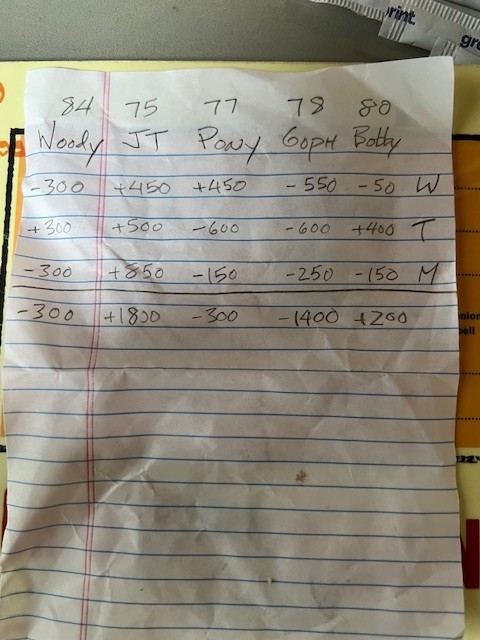 print.
gre
84 75 77 78 80
Woody JT Pony Goph Bobby
-300 +450 +450 -550 -50 W
+300 +500 -600 -600 +400 T
-300 +850 -150 -250 -150 M
-300 +1800 -300 -1400 +200